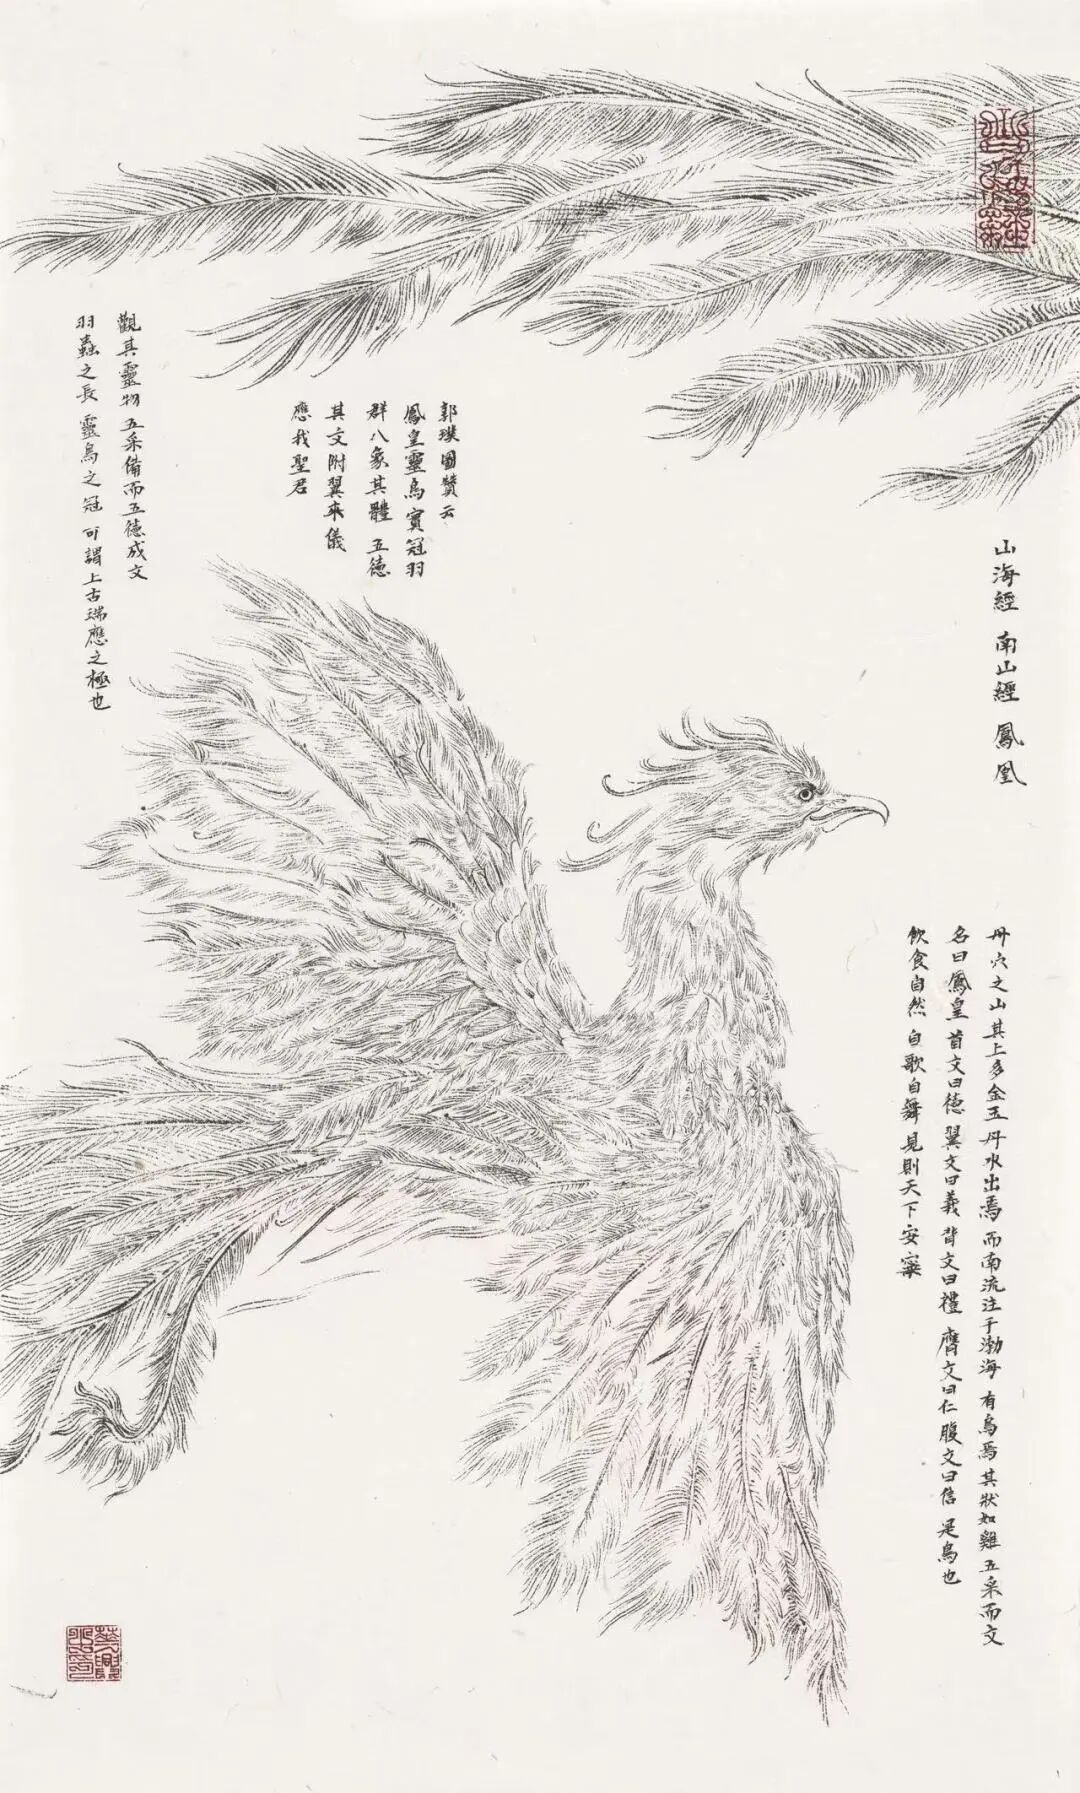 山海經 南山經 鳳凰
丹穴之山 其上多金玉 丹水出焉 而南流注于渤海 有鳥焉 其狀如雞 五采而文
名曰鳳皇 首文曰德 翼文曰義 背文曰禮 膺文曰仁 腹文曰信 是鳥也
飲食自然 自歌自舞 見則天下安寧
郭璞圖贊云
鳳皇靈鳥 實冠羽
群 八象其體 五德
其文 附翼來儀
應我聖君
觀其靈物 五采備而五德成文
羽蟲之長 靈鳥之冠 可謂上古瑞應之極也